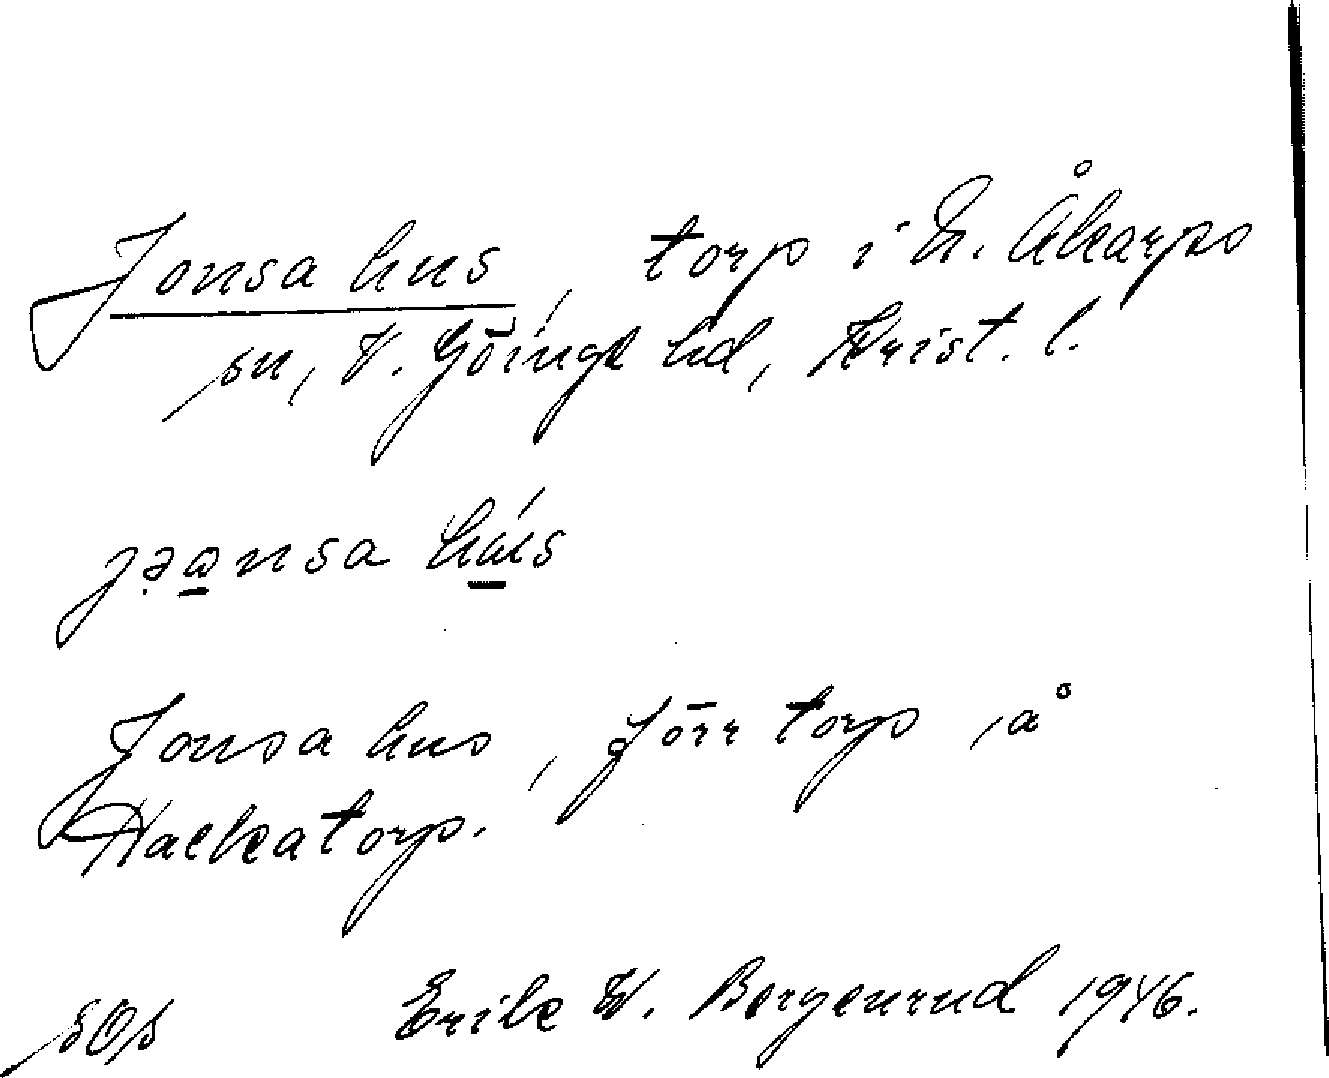 Jonsa hus, torp i N. Åkarps
sn, V. Göinge hd, Krist. l.
Jonsa hus, förr torp å
Hackatorp.
SOS Erik W. Bergenrud 1946.